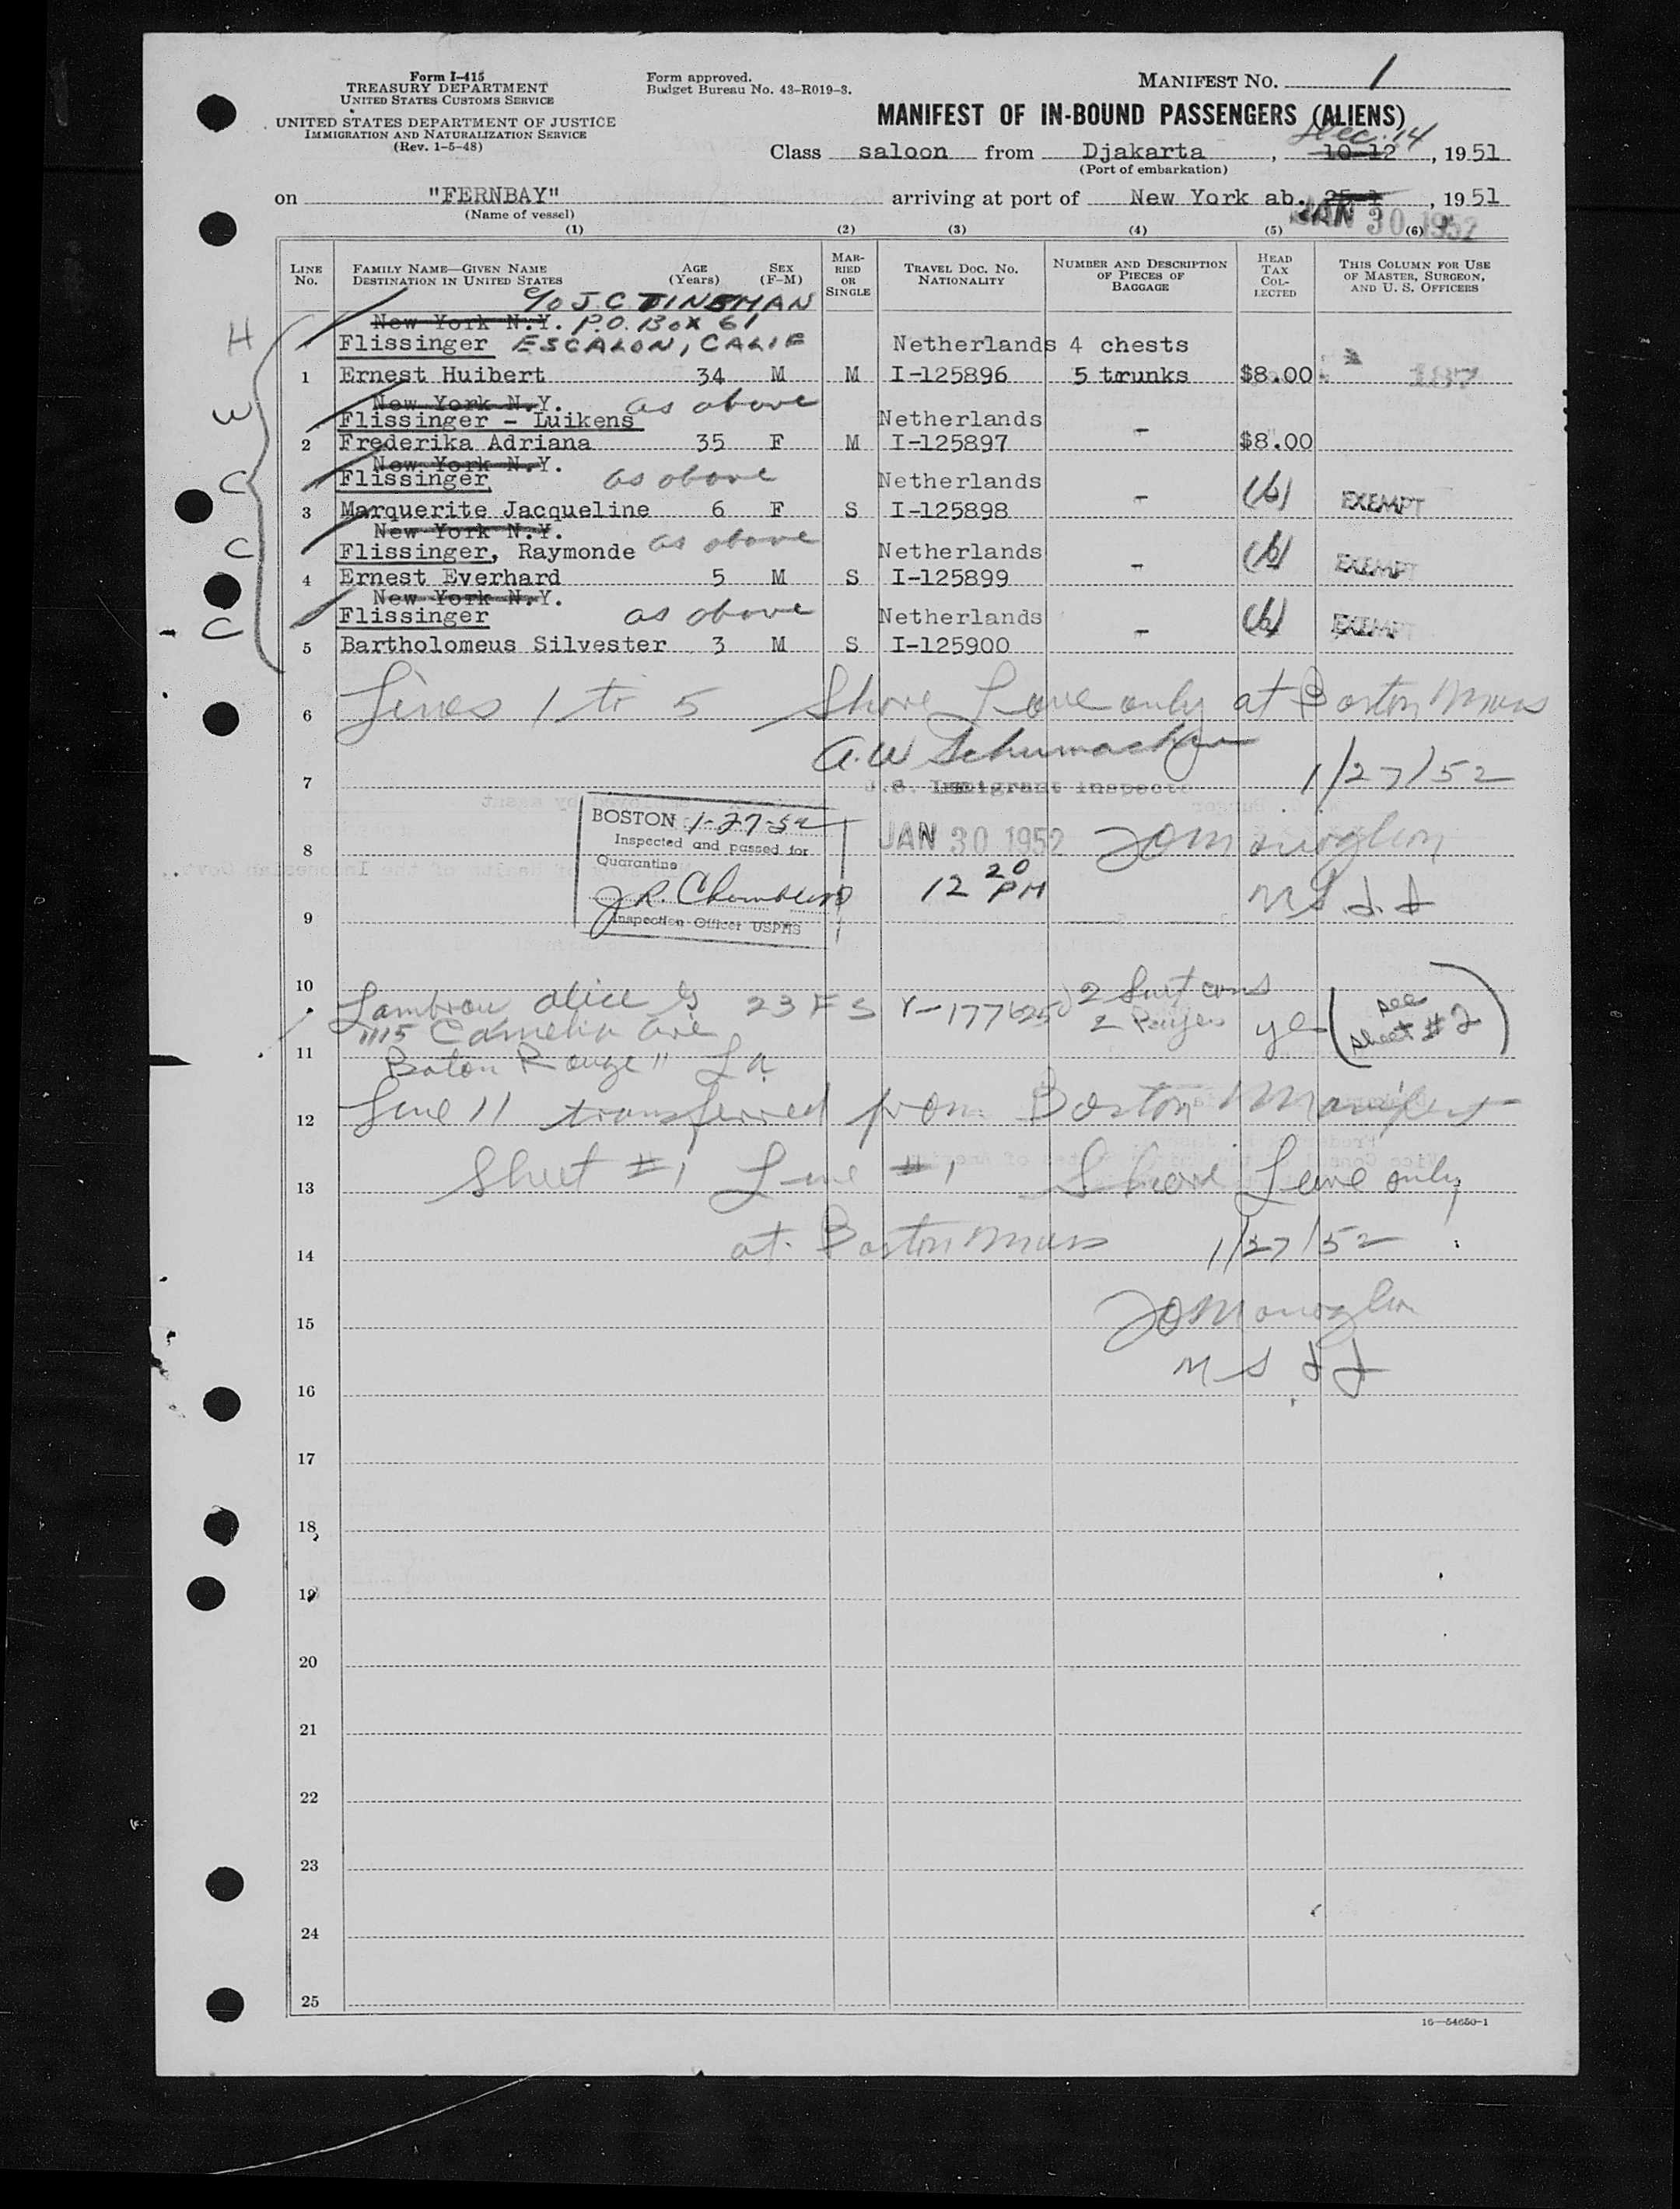 Form I-415
TREASURY DEPARTMENT
UNITED STATES CUSTOMS SERVICE
UNITED STATES DEPARTMENT OF JUSTICE
IMMIGRATION AND NATURALIZATION SERVICE
(Rev. 1-5-48)
Form approved.
Budget Bureau No. 43-R019-3.
MANIFEST NO. 1
MANIFEST OF IN-BOUND PASSENGERS (ALIENS)
Dec. 14
Class saloon from Djakarta , 10-12 , 1951
(Port of embarkation)
on "FERNBAY" arriving at port of New York ab. , 1951
(Name of vessel)
JAN 30 1952
(1) (2) (3) (4) (5) (6)
LINE No. FAMILY NAME—GIVEN NAME DESTINATION IN UNITED STATES AGE (Years) SEX (F-M) MARRIED OR SINGLE TRAVEL DOC. NO. NATIONALITY NUMBER AND DESCRIPTION OF PIECES OF BAGGAGE HEAD TAX COLLECTED THIS COLUMN FOR USE OF MASTER, SURGEON, AND U. S. OFFICERS
c/o J C TINEMAN
New York N.Y. P.O. BOX 61
H Flissinger ESCALON, CALIF Netherlands 4 chests
1 Ernest Huibert 34 M M I-125896 5 trunks $8.00 187
New York N.Y. as above
W Flissinger - Luikens Netherlands -
2 Frederika Adriana 35 F M I-125897 $8.00
New York N.Y.
C Flissinger as above Netherlands -
3 Marquerite Jacqueline 6 F S I-125898 (b) EXEMPT
New York N.Y.
C Flissinger, Raymonde as above Netherlands -
4 Ernest Everhard 5 M S I-125899 (b) EXEMPT
New York N.Y.
C Flissinger as above Netherlands -
5 Bartholomeus Silvester 3 M S I-125900 (b) EXEMPT
6 Lines 1 to 5 Shore Leave only at Boston Mass
A.W Schumacher
7 U.S. Immigrant Inspector 1/27/52
BOSTON 1-27-52
Inspected and passed for
Quarantine
Inspection Officer USPHS
8 JAN 30 1952
12 20 PM
9
10
Alice G 23 F S 2 Suit cases
1115 Camelia Ave yes (see sheet #2)
11 Baton Rouge La
12 Line 11 transferred from Boston Manifest
13 Sheet #1 Line #1 Shore Leave only
14 at Boston Mass 1/27/52
15
16
17
18
19
20
21
22
23
24
25
16—54650-1